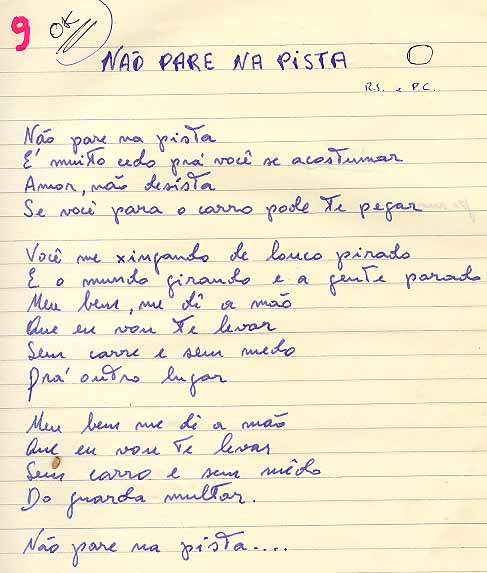 9 OK
NÃO PARE NA PISTA
R.S. e P.C.
Não pare na pista
É muito cedo prá você se acostumar
Amor, não desista
Se você para o carro pode te pegar
Você me xingando de louco pirado
E o mundo girando e a gente parado
Meu bem, me dê a mão
Que eu vou te levar
Sem carro e sem medo
Prá outro lugar
Meu bem me dê a mão
Que eu vou te levar
Sem carro e sem mêdo
Do guarda multar.
Não pare na pista....